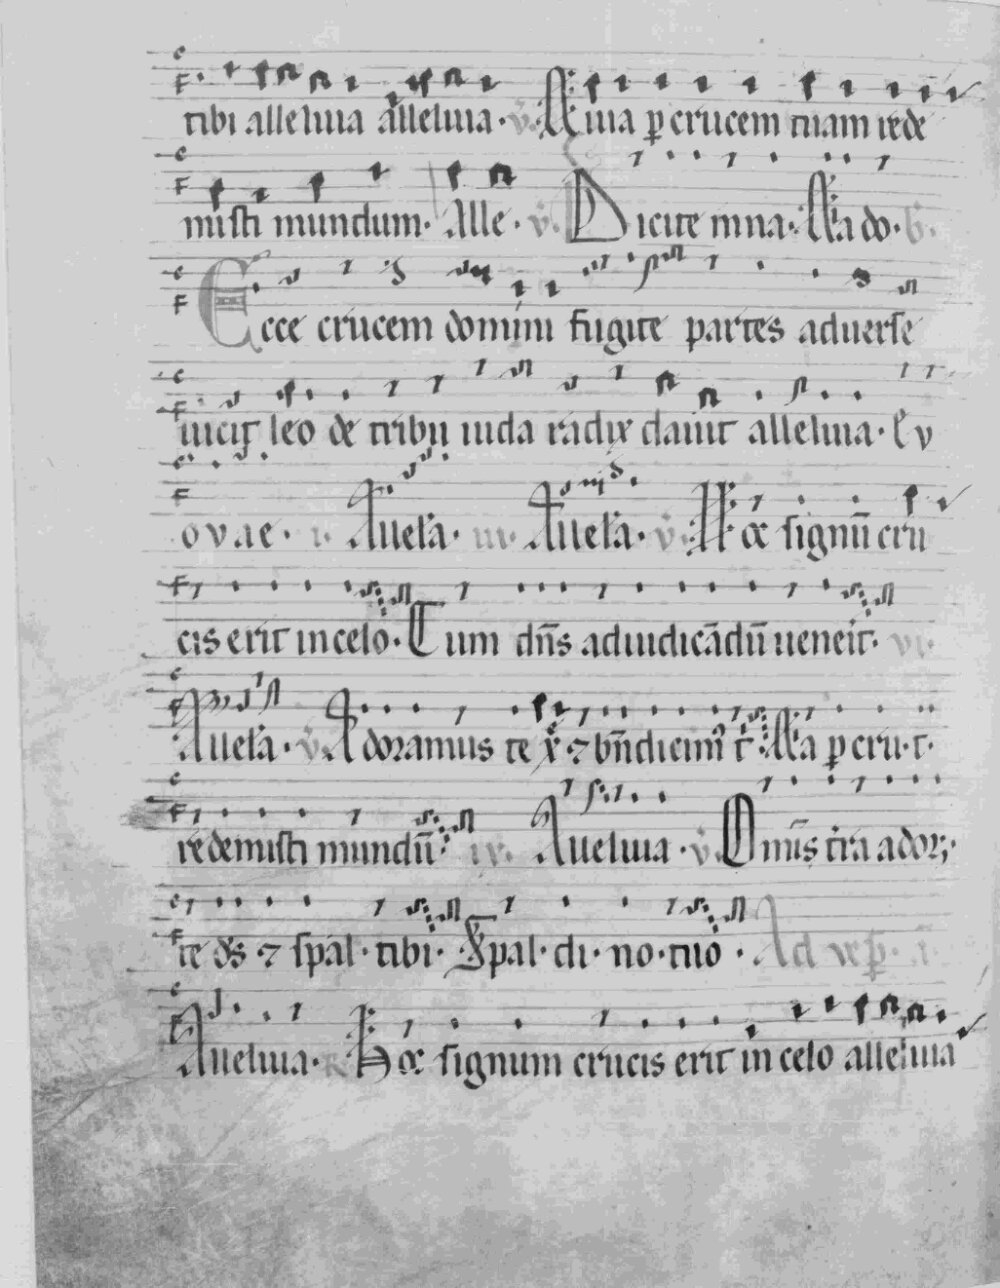 tibi alleluia alleluia · v̄. Quia ꝑ crucem tuam rede
misti mundum · Alle · v̄. Dicite in na · All'a do · v̄.
Ecce crucem domini fugite partes aduerse
uicit leo de tribu iuda radix dauit alleluia · Ev
ovae · i. Aueła · iii. Aueła · v̄. Hoc signū cru
cis erit in celo · Cum dn̄s ad iudicādū ueneit · vi.
Aueła · v̄ Adoramus te xp̄ ⁊ bn̄dicim' t' All'a ꝑ cru · t ·
redemisti mundū · iv. Aueluia · v̄. Omīs t'ra ador;
te d̄s ⁊ spal · tibi · Spal · di · no · tuo · Ad vesꝑ · i.
Aueluia · R Hoc signum crucis erit in celo alleluia